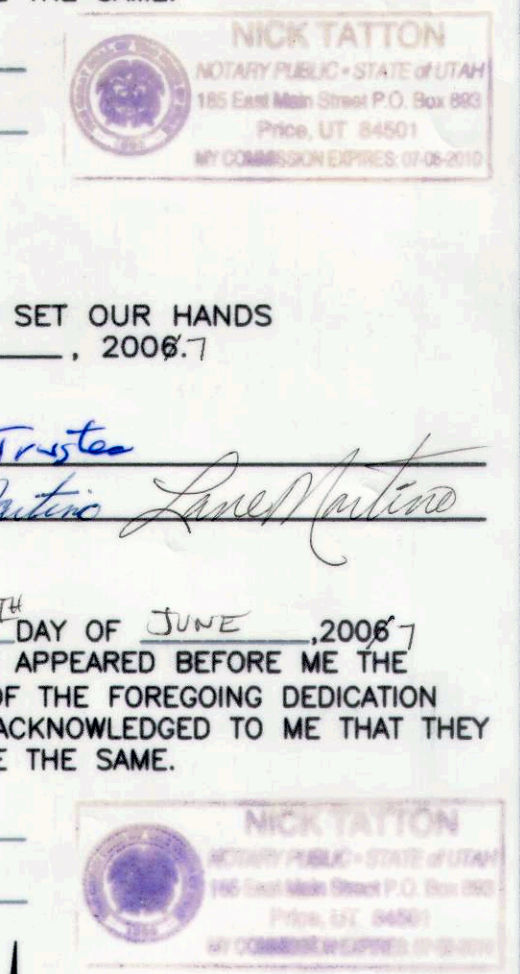 THE SAME.
NICK TATTON
NOTARY PUBLIC • STATE of UTAH
185 East Main Street P.O. Box 893
Price, UT 84501
MY COMMISSION EXPIRES: 07-08-2010
1896
SET OUR HANDS
, 2006.7
Trustee
Lane Martino
TH DAY OF JUNE ,2006 7
APPEARED BEFORE ME THE
OF THE FOREGOING DEDICATION
ACKNOWLEDGED TO ME THAT THEY
THE SAME.
NICK TATTON
NOTARY PUBLIC • STATE of UTAH
185 East Main Street P.O. Box 893
Price, UT 84501
MY COMMISSION EXPIRES:
1896